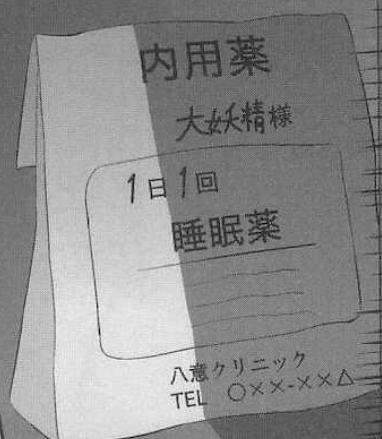 内用薬
大妖精様
1日1回
睡眠薬
八意クリニック
TEL ○××-××△